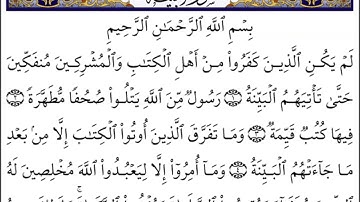 بِسْمِ اللَّهِ الرَّحْمَٰنِ الرَّحِيمِ
لَمْ يَكُنِ الَّذِينَ كَفَرُوا مِنْ أَهْلِ الْكِتَابِ وَالْمُشْرِكِينَ مُنفَكِّينَ
حَتَّىٰ تَأْتِيَهُمُ الْبَيِّنَةُ ۝ رَسُولٌ مِّنَ اللَّهِ يَتْلُوا صُحُفًا مُّطَهَّرَةً ۝
فِيهَا كُتُبٌ قَيِّمَةٌ ۝ وَمَا تَفَرَّقَ الَّذِينَ أُوتُوا الْكِتَابَ إِلَّا مِنْ بَعْدِ
مَا جَاءَتْهُمُ الْبَيِّنَةُ ۝ وَمَا أُمِرُوا إِلَّا لِيَعْبُدُوا اللَّهَ مُخْلِصِينَ لَهُ